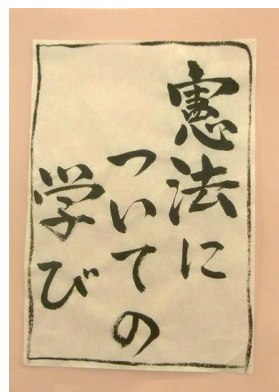 憲法に
ついての
学び